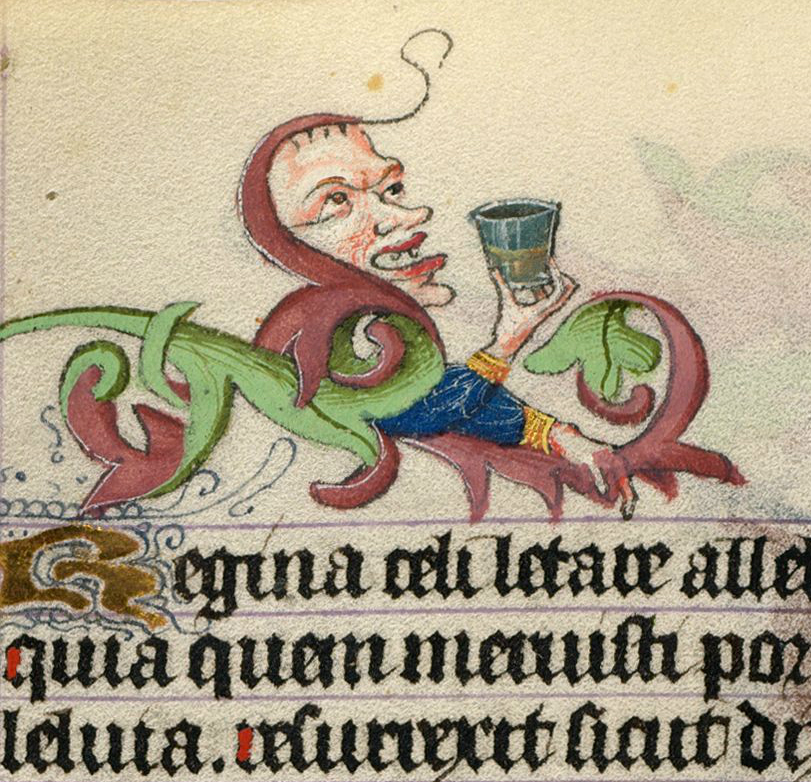 Regina celi letare alle
quia quem meruisti por
leluia. resurrexit sicut di